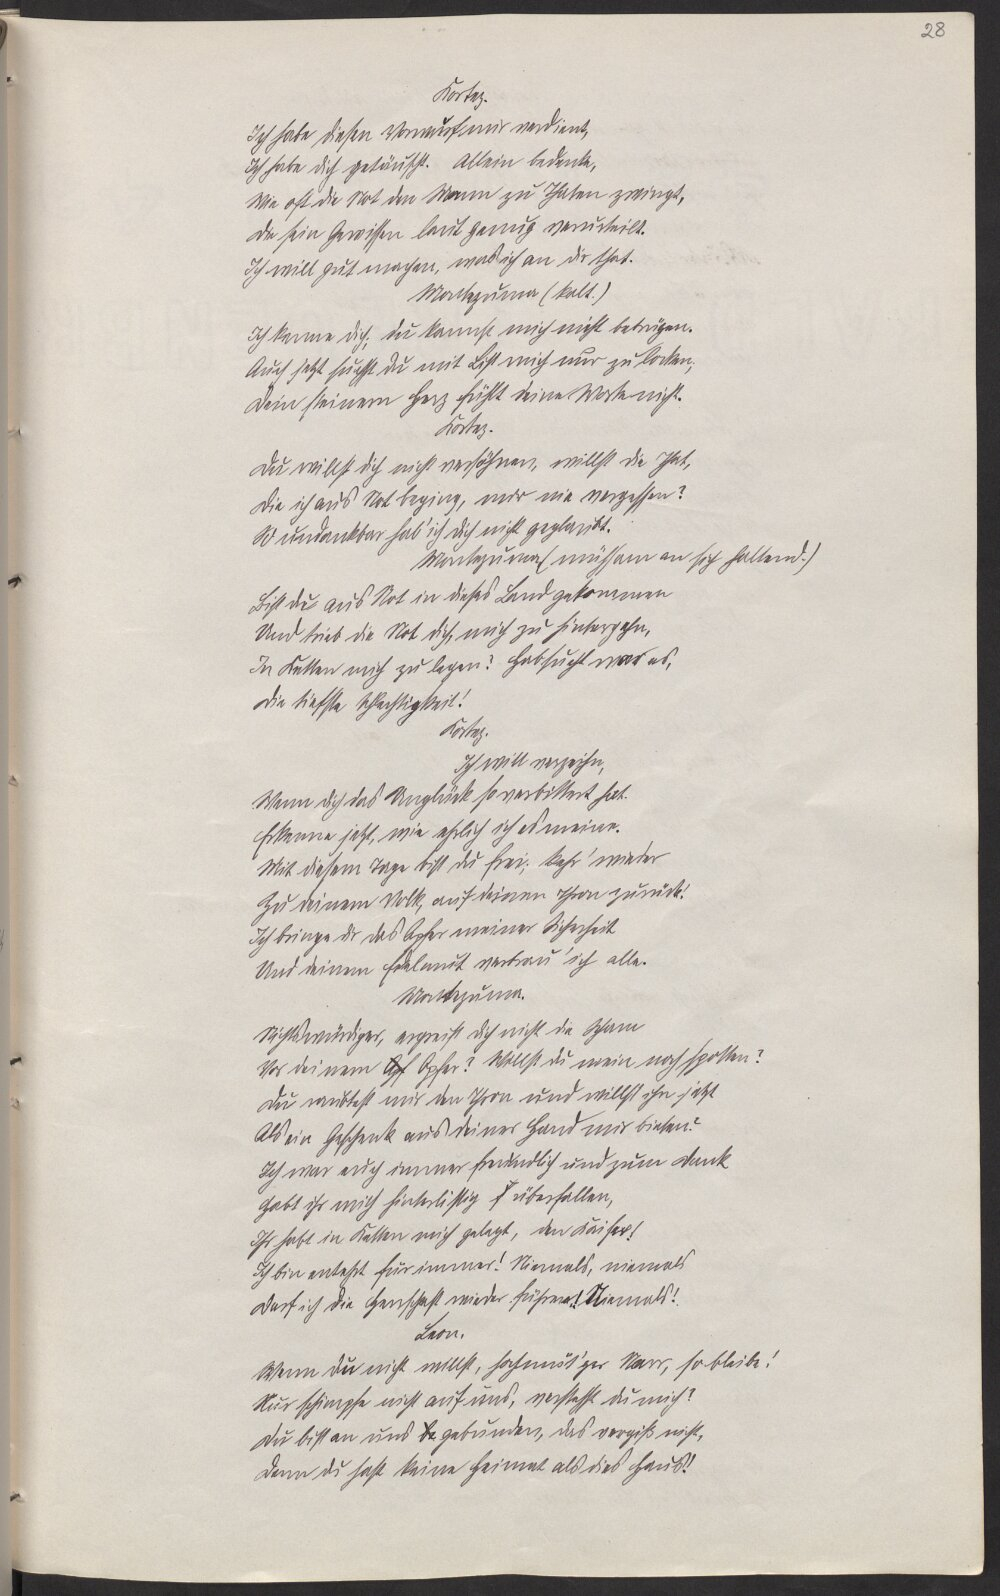 28
Kortez.
Ich habe diesen Vorwurf mir verdient,
Ich habe dich getäuscht. Allein bedenke,
Wie oft die Not den Mann zu Thaten zwingt,
Die sein Gewissen laut genug verurteilt.
Ich will gut machen, was ich an dir that.
Montezuma (kalt.)
Ich kenne dich; du kannst mich nicht betrügen.
Auch jetzt suchst du mit List mich nur zu locken;
Dein steinern Herz fühlt deine Worte nicht.
Kortez.
Du willst dich nicht versöhnen, willst die That,
Die ich aus Not beging, mir nie vergessen?
So undankbar hab' ich dich nicht geglaubt.
Montezuma (mühsam an sich haltend.)
Bist du aus Not in dieses Land gekommen
Und trieb die Not dich, mich zu hintergehn,
In Ketten mich zu legen? Habsucht war es,
Die tiefste Schlechtigkeit!
Kortez.
Ich will verzeihn,
Wenn dich das Unglück so verbittert hat.
Erkenne jetzt, wie ehrlich ich es meine.
Mit diesem Tage bist du frei; kehr' wieder
Zu deinem Volk, auf deinen Thron zurück!
Ich bringe dir das Opfer meiner Sicherheit
Und deinem Edelmut vertrau' ich alle.
Montezuma.
Nichtswürdiger, ergreift dich nicht die Scham
Vor deinem Opf Opfer? Willst du mein noch spotten?
Du raubtest mir den Thron und willst ihn jetzt
Als ein Geschenk aus deiner Hand mir bieten?
Ich war euch immer freundlich und zum Dank
Habt ihr mich hinterlistig überfallen,
Ihr habt in Ketten mich gelegt, den Kaiser!
Ich bin entehrt für immer! Niemals, niemals
Darf ich die Herrschaft wieder führen! Niemals!
Leon.
Wenn du nicht willst, hochmüt'ger Narr, so bleibe!
Nur schimpfe nicht auf uns, verstehst du mich?
Du bist an uns be gebunden, das vergiß nicht,
Denn du hast keine Heimat als dies Haus!